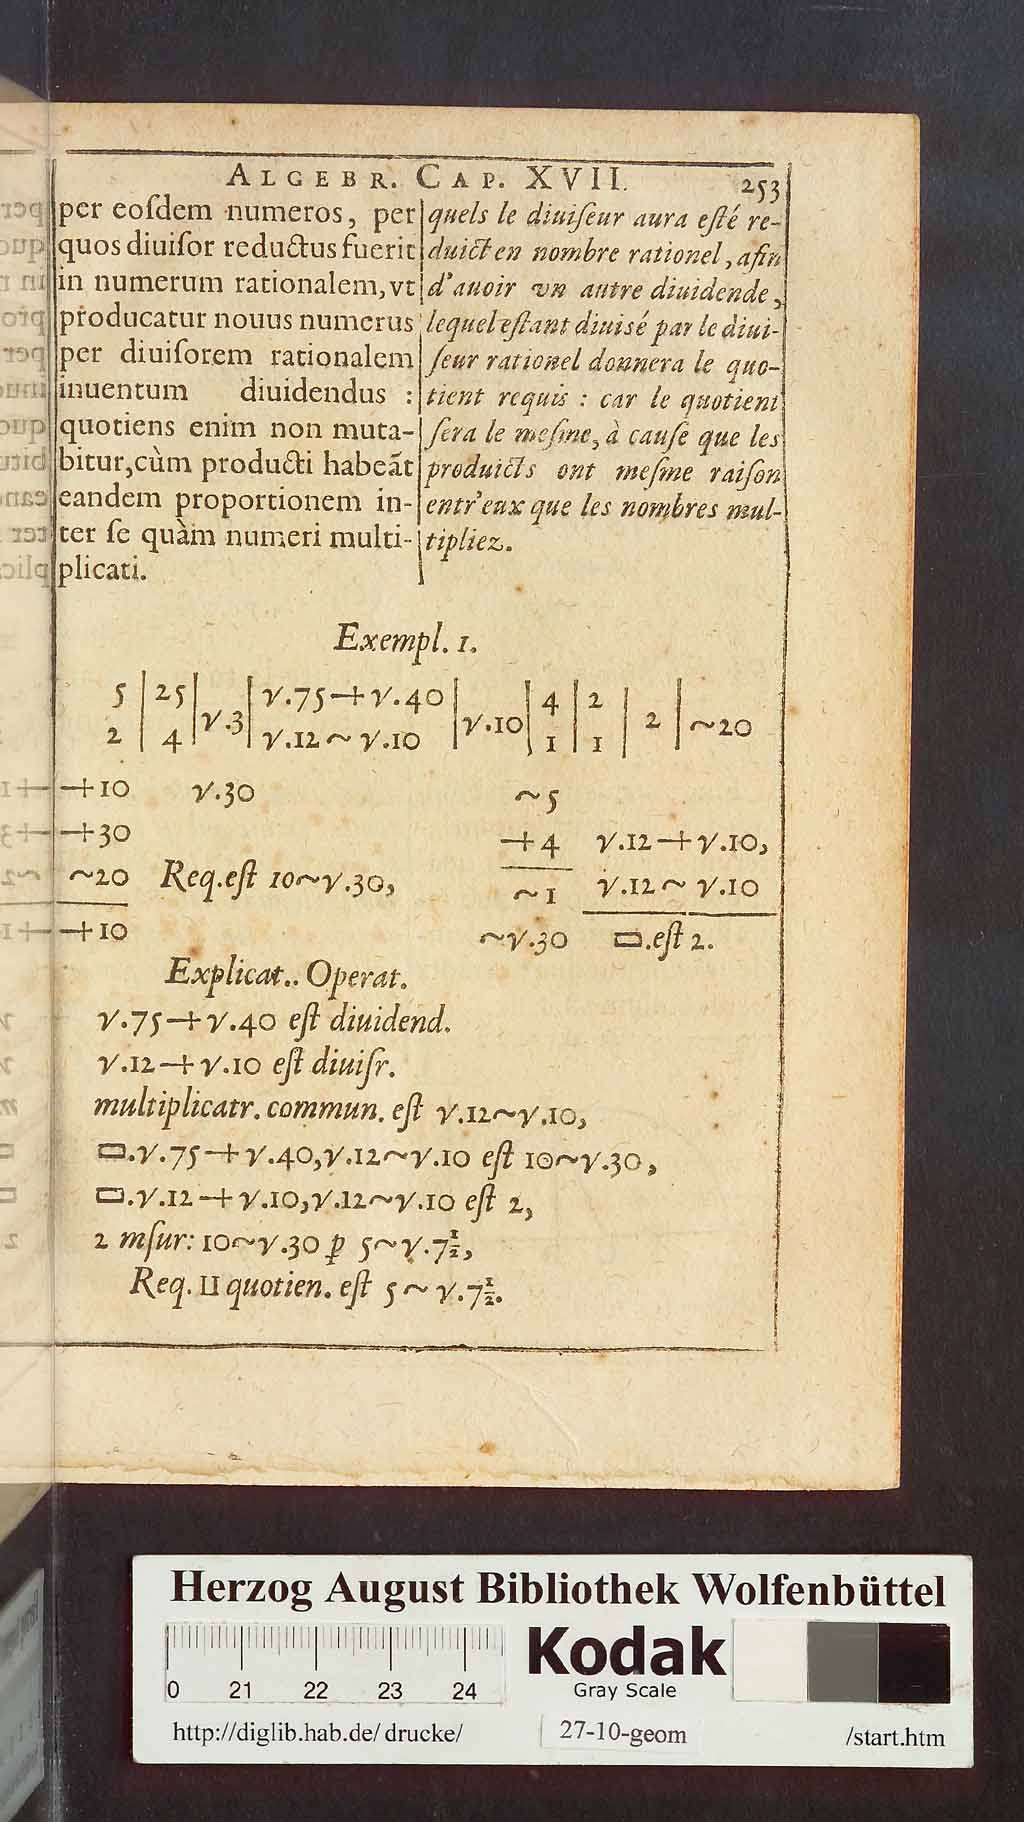 ALGEBR. CAP. XVII. 253
per eoſdem numeros, per
quos diuiſor reductus fuerit
in numerum rationalem, vt
producatur nouus numerus
per diuiſorem rationalem
inuentum diuidendus :
quotiens enim non muta-
bitur, cùm producti habeãt
eandem proportionem in-
ter ſe quàm numeri multi-
plicati.
quels le diuiſeur aura eſté re-
duict en nombre rationel, afin
d'auoir vn autre diuidende,
lequel eſtant diuisé par le diui-
ſeur rationel donnera le quo-
tient requis : car le quotient
ſera le meſme, à cauſe que les
produicts ont meſme raiſon
entr'eux que les nombres mul-
tipliez.
Exempl. 1.
5 | 25 | √.3 | √.75 + √.40 | √.10 | 4 | 2 | 2 | ~20
2 | 4 | √.12 ~ √.10 | 1 | 1
+10 √.30 ~5
+30 +4 √.12 + √.10,
~20 Req. eſt 10~√.30, ~1 √.12 ~ √.10
+10 ~√.30 ▭.eſt 2.
Explicat.. Operat.
√.75 + √.40 eſt diuidend.
√.12 + √.10 eſt diuiſr.
multiplicatr. commun. eſt √.12~√.10,
▭.√.75 + √.40, √.12~√.10 eſt 10~√.30,
▭.√.12 + √.10, √.12~√.10 eſt 2,
2 mſur: 10~√.30 ꝑ 5~√.7½,
Req. II quotien. eſt 5 ~ √.7½.
Herzog August Bibliothek Wolfenbüttel
0 21 22 23 24
Kodak
Gray Scale
http://diglib.hab.de/ drucke/ 27-10-geom /start.htm